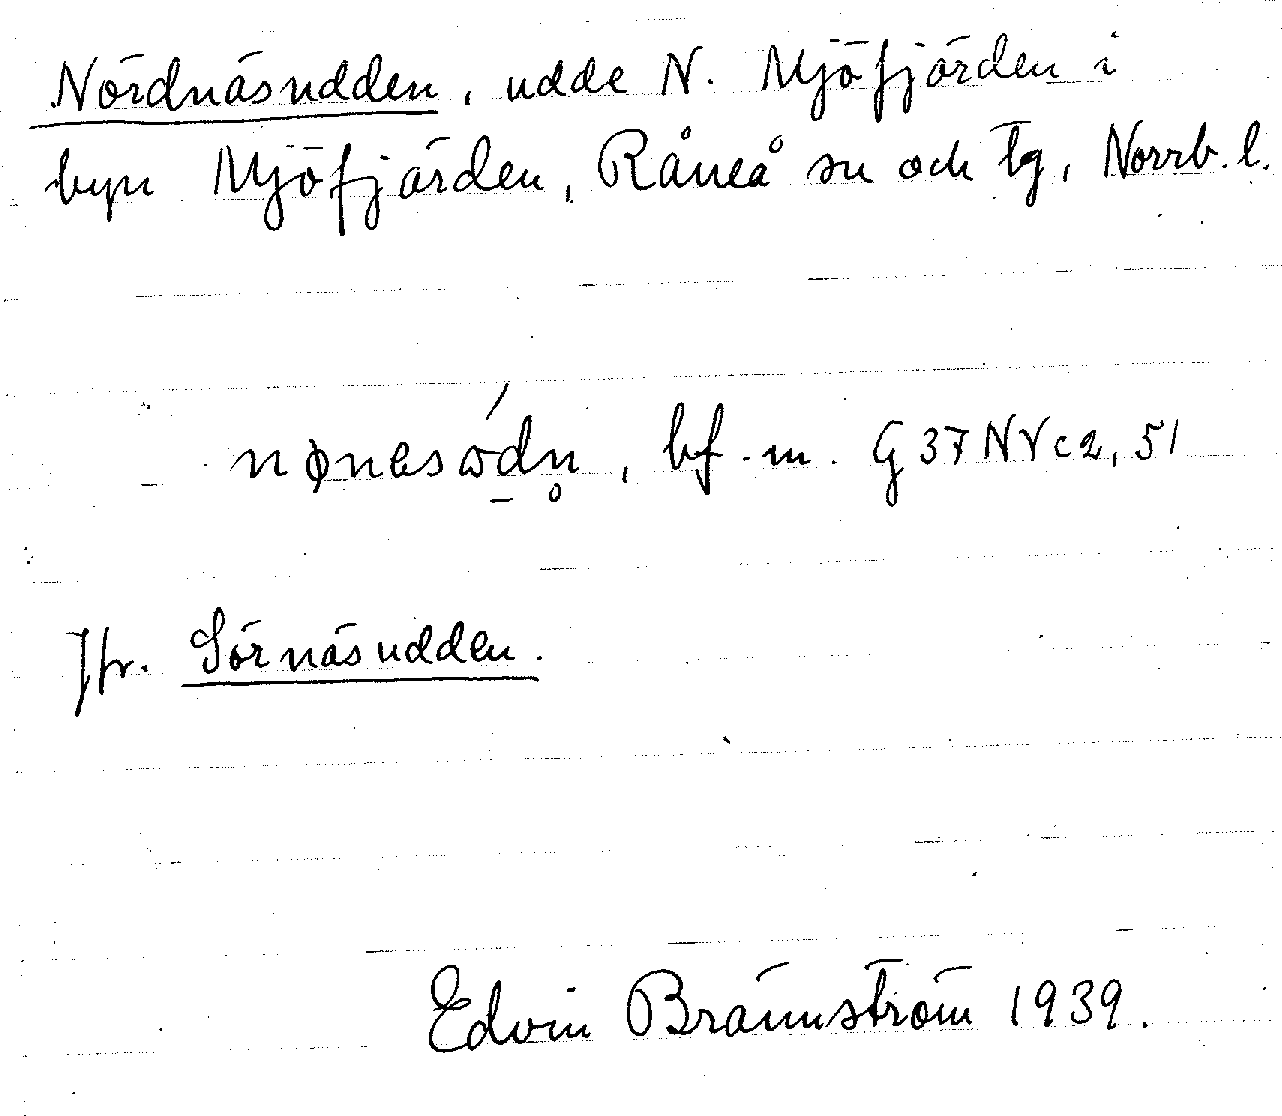 Nördnäsudden, udde N. Mjöfjärden i
byn Mjöfjärden, Råneå sn och tg, Norrb. l.
bf. m. G37NVc2, 51
Jfr. Sörnäsudden.
Edvin Brännström 1939.